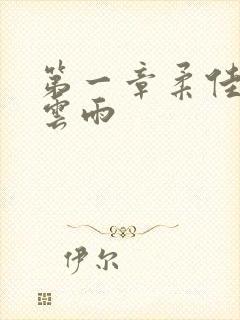 第一章柔佳
雲雨
伊尔